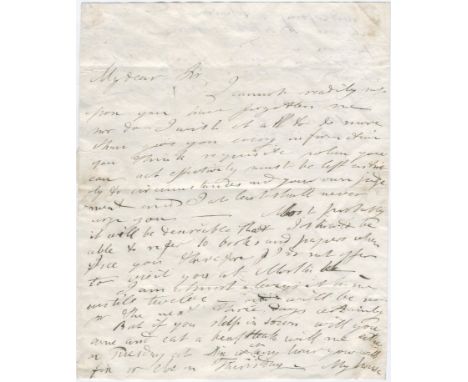 My dear Sir,
I cannot readily
upon you have forgotten me
nor do I wish it all to do more
than give you every information
you think requisite when you
can act effectively must be left
to circumstances and your own judge
ment and I at least shall never
urge you — Most probably
it will be desirable that I should be
able to refer to books and papers when
I see you therefore I do not offer
to visit you at
I am almost always at home
until twelve — and will be
the next three days certainly
But if you sleep in town will you
come and eat a beef Steak with me
on Tuesday at any hour you will
fix or else on Thursday — My